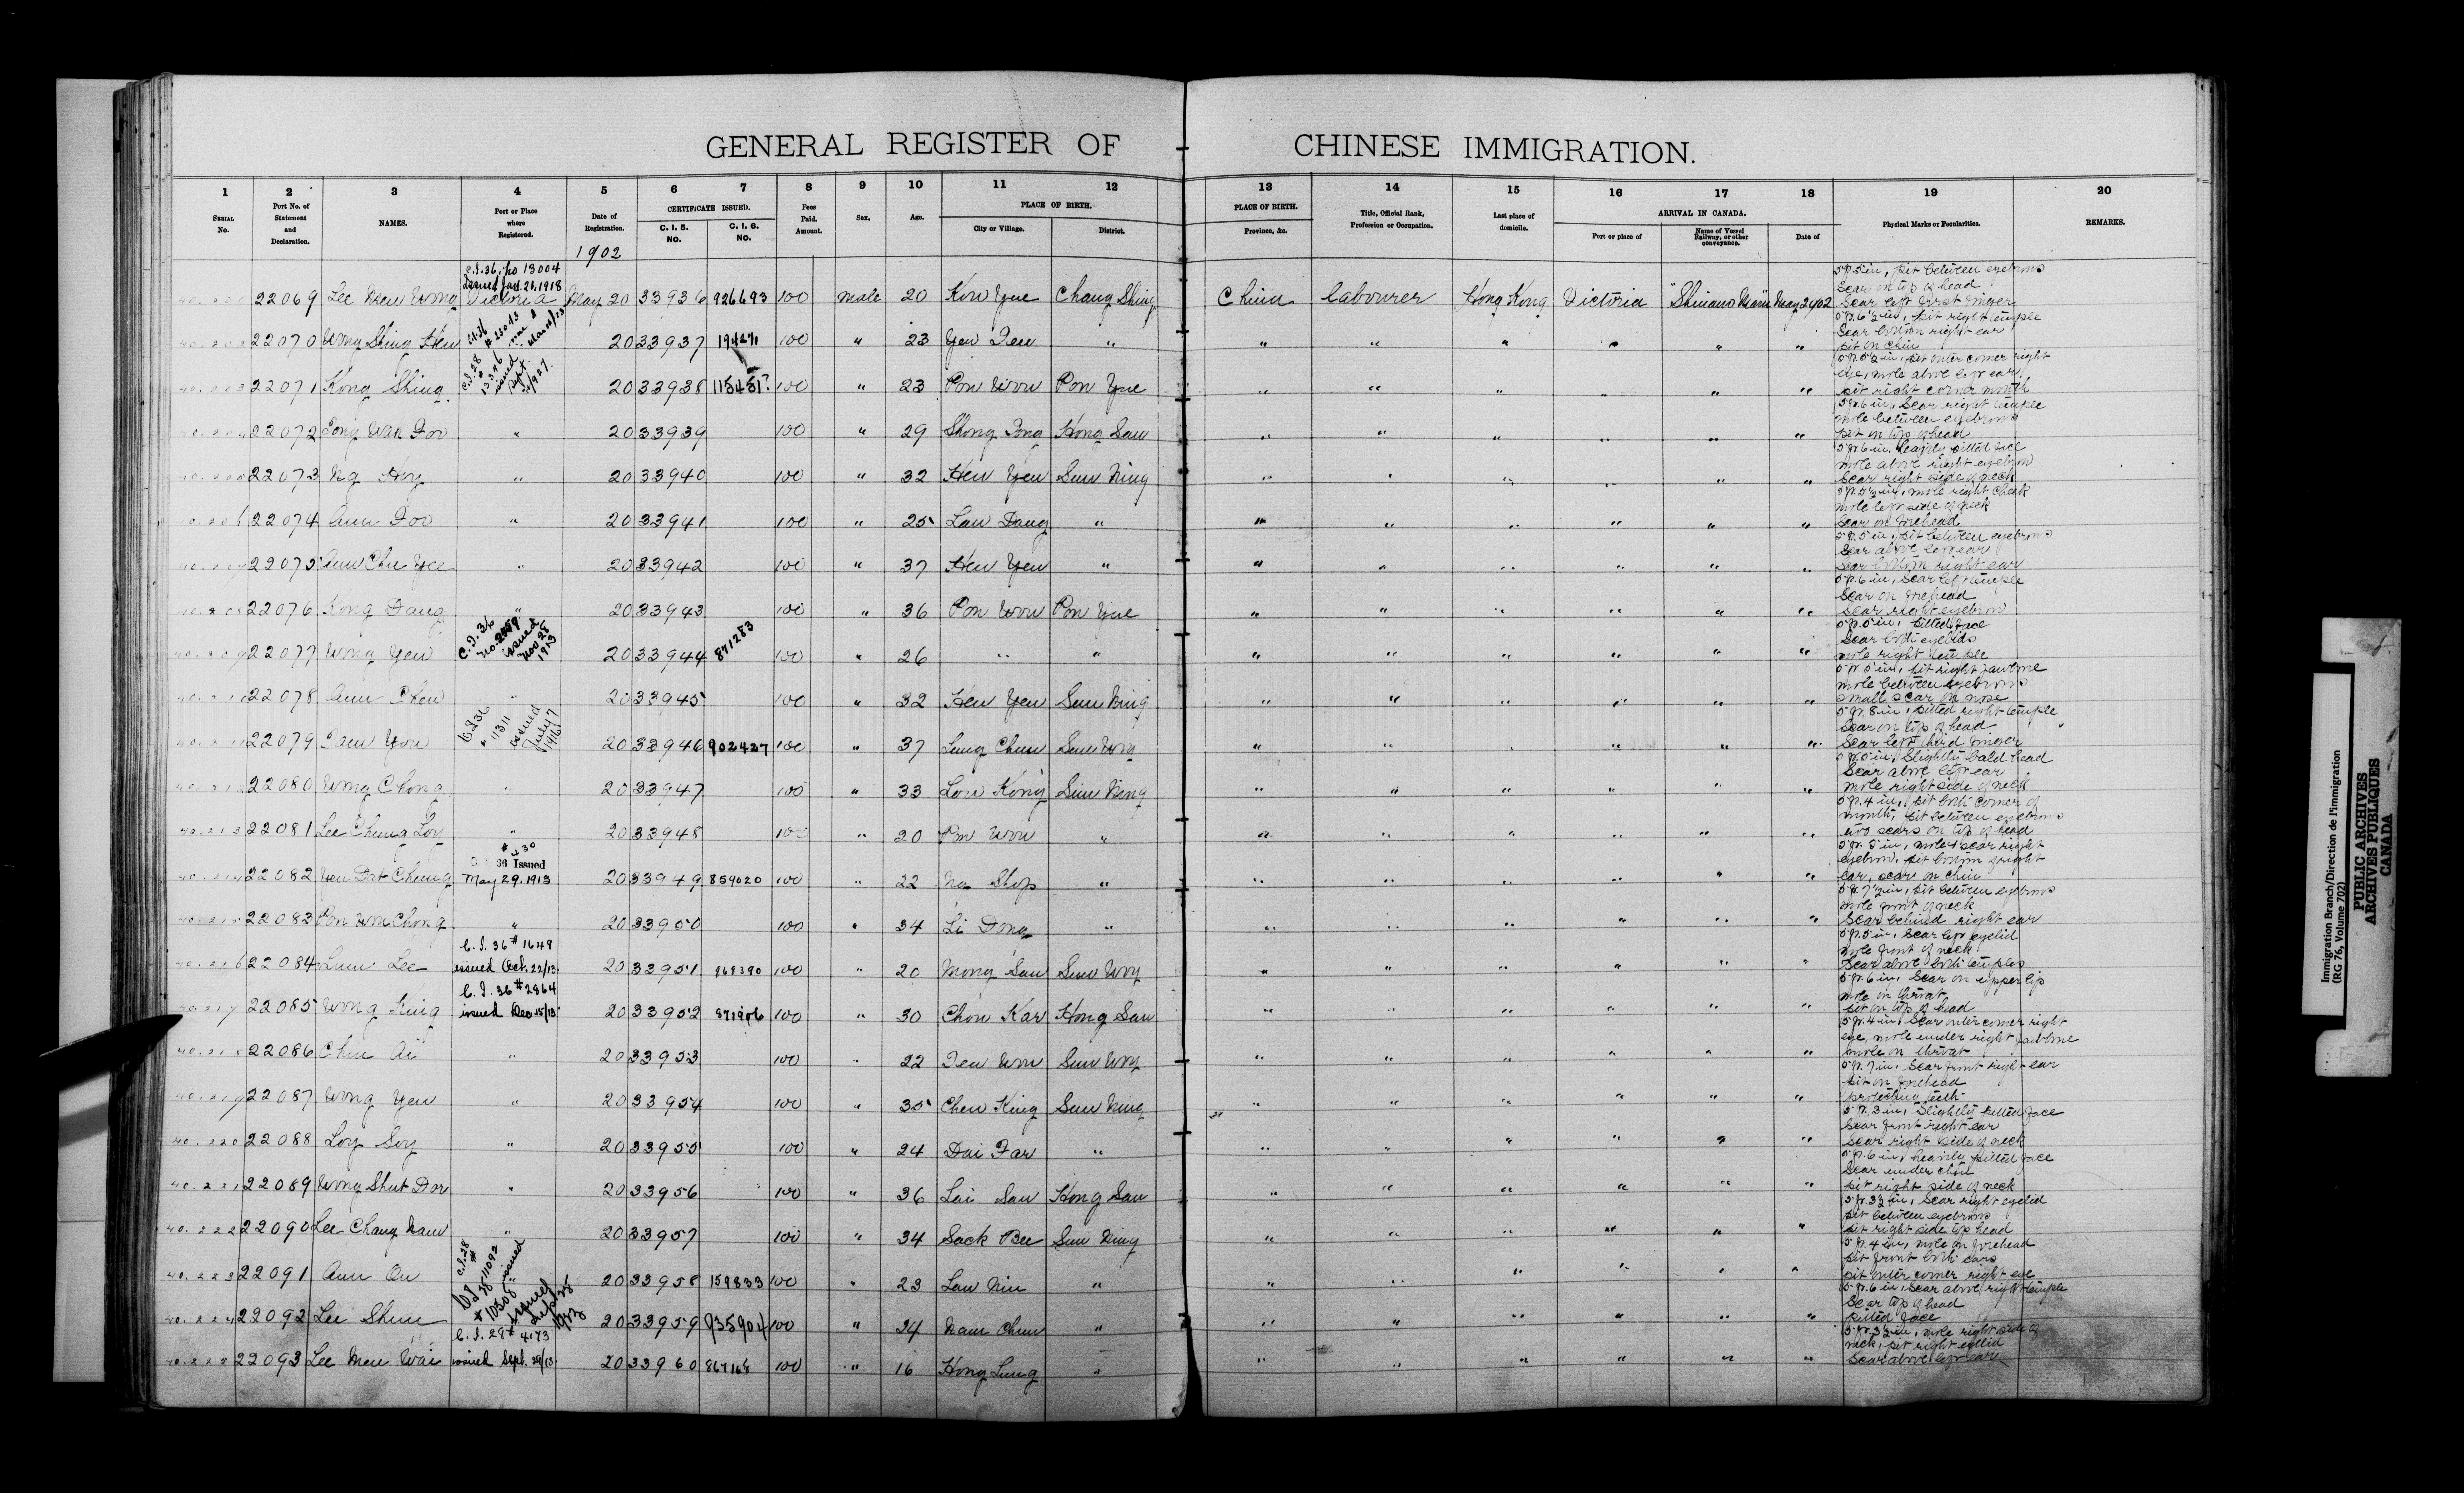 GENERAL REGISTER OF CHINESE IMMIGRATION.
1 2 3 4 5 6 7 8 9 10 11 12 13 14 15 16 17 18 19 20
SERIAL No. Port No. of Statement and Declaration. NAMES. Port or Place where Registered. Date of Registration. CERTIFICATE ISSUED. C. I. 5. NO. C. I. 6. NO. Fees Paid. Amount. Sex. Age. PLACE OF BIRTH. City or Village. District. PLACE OF BIRTH. Province, &c. Title, Official Rank, Profession or Occupation. Last place of domicile. ARRIVAL IN CANADA. Port or place of Name of Vessel Railway, or other conveyance. Date of Physical Marks or Peculiarities. REMARKS.
1902
C.I.36. no 13004
Issued Jan. 21, 1918
22069 Lee Mew Wong Victoria May 20 33936 926693 100 male 20 Kow Yue Chang Shing China labourer Hong Kong Victoria "Shinano Maru" May 2 1902 5 ft. 5 in, pit between eyebrows
Scar on top of head
Scar left first finger
22070 Wong Shing Hew 20 33937 100 " 23 Yew Tew " " " " " " " 5 ft. 6½ in, pit right temple
Scar bottom right ear
pit on chin
22071 Kong Shing 20 33938 100 " 23 Pon Woo Pon Yue " " " " " " 5 ft. 5½ in, pit outer corner right
eye, mole above left ear,
pit right corner mouth
22072 Song Wah Foo " 20 33939 100 " 29 Shong Tong Hong San " " " " " " 5 ft. 6 in, Scar right temple
mole between eyebrows
pit on top of head
22073 Ng Hoy " 20 33940 100 " 32 Hew Yen Sun Ning " " " " " " 5 ft. 6 in, heavily pitted face
mole above right eyebrow
Scar right side of neck
22074 Aum Foo " 20 33941 100 " 25 Law Dang " " " " " " " 5 ft. 5½ in, mole right cheek
mole left side of neck
Scar on forehead
22075 Aum Chu Yee " 20 33942 100 " 37 Hew Yen " " " " " " " 5 ft. 5 in, pit between eyebrows
Scar above left ear
Scar bottom right ear
22076 Kong Dang " 20 33943 100 " 36 Pon Woo Pon Yue " " " " " " 5 ft. 6 in, Scar left temple
Scar on forehead
Scar right eyebrow
C.I.36 issued Nov 28 1913
22077 Wong Yew 20 33944 871283 100 " 26 " " " " " " " " 5 ft. 5 in, pitted face
Scar both eyelids
mole right temple
22078 Aum Chew " 20 33945 100 " 32 Hew Yen Sun Ning " " " " " " 5 ft. 5 in, pit right jawbone
mole between eyebrows
small scar on nose
C.I.36 # 11311 issued July 7 1916
22079 Tam You 20 33946 902427 100 " 37 Lung Chun Sun Woy " " " " " " 5 ft. 8 in, pitted right temple
Scar on top of head
Scar left third finger
22080 Wong Chong " 20 33947 100 " 33 Low Kong Sun Ning " " " " " " 5 ft. 5 in, Slightly bald head
Scar above left ear
mole right side of neck
22081 Lee Chung Loy " 20 33948 100 " 20 Pon Woo " " " " " " " 5 ft. 4 in, pit both corner of
mouth, pit between eyebrows
two scars on top of head
36 Issued
May 29. 1913
22082 Yew Dat Cheung 20 33949 859020 100 " 22 Na Shop " " " " " " " 5 ft. 5 in, mole & scar right
eyebrow, pit bottom of right
ear, scar on chin
22083 Pon Woo Chong " 20 33950 100 " 34 Li Dong " " " " " " " 5 ft. 7½ in, pit between eyebrows
mole front of neck
Scar behind right ear
C. I. 36 # 1649
issued Oct. 22/13
22084 Lum Lee 20 33951 868390 100 " 20 Mong San Sun Woy " " " " " " 5 ft. 5 in, Scar left eyelid
mole front of neck
Scar above both temples
C. I. 36 # 2864
issued Dec 15/13
22085 Wong King 20 33952 871906 100 " 30 Chow Kar Hong San " " " " " " 5 ft. 6 in, Scar on upper lip
mole on throat
pit on top of head
22086 Chin Ai " 20 33953 100 " 22 Tew Woo Sun Woy " " " " " " 5 ft. 4 in, Scar outer corner right
eye, mole under right jawbone
mole on throat
22087 Wong Yew " 20 33954 100 " 35 Chew King Sun Ning " " " " " " 5 ft. 7 in, Scar front right ear
pit on forehead
projecting teeth
22088 Loy Soy " 20 33955 100 " 24 Dai Far " " " " " " " 5 ft. 3 in, Slightly pitted face
Scar front right ear
Scar right side of neck
22089 Wong Shut Dor " 20 33956 100 " 36 Lai San Hong San " " " " " " 5 ft. 6 in, heavily pitted face
Scar under chin
pit right side of neck
22090 Lee Chang Nam " 20 33957 100 " 34 Sack Bee Sun Ning " " " " " " 5 ft. 3½ in, Scar right eyelid
pit between eyebrows
pit right side top head
22091 Aum On 20 33958 159833 100 " 23 Law Nin " " " " " " " 5 ft. 4 in, mole on forehead
pit front both ears
pit outer corner right eye
22092 Lee Shun 20 33959 935904 100 " 24 Nam Chun " " " " " " " 5 ft. 6 in, Scar above right temple
Scar top of head
pitted face
C. I. 28 # 4173
issued Sept. 29/13
22093 Lee Mew Wai 20 33960 867168 100 " 16 Hong Lung " " " " " " " 5 ft. 3½ in, mole right side of
neck, pit right eyelid
Scar above left ear
Immigration Branch/Direction de l'immigration
(RG 76, Volume 702)
PUBLIC ARCHIVES
ARCHIVES PUBLIQUES
CANADA